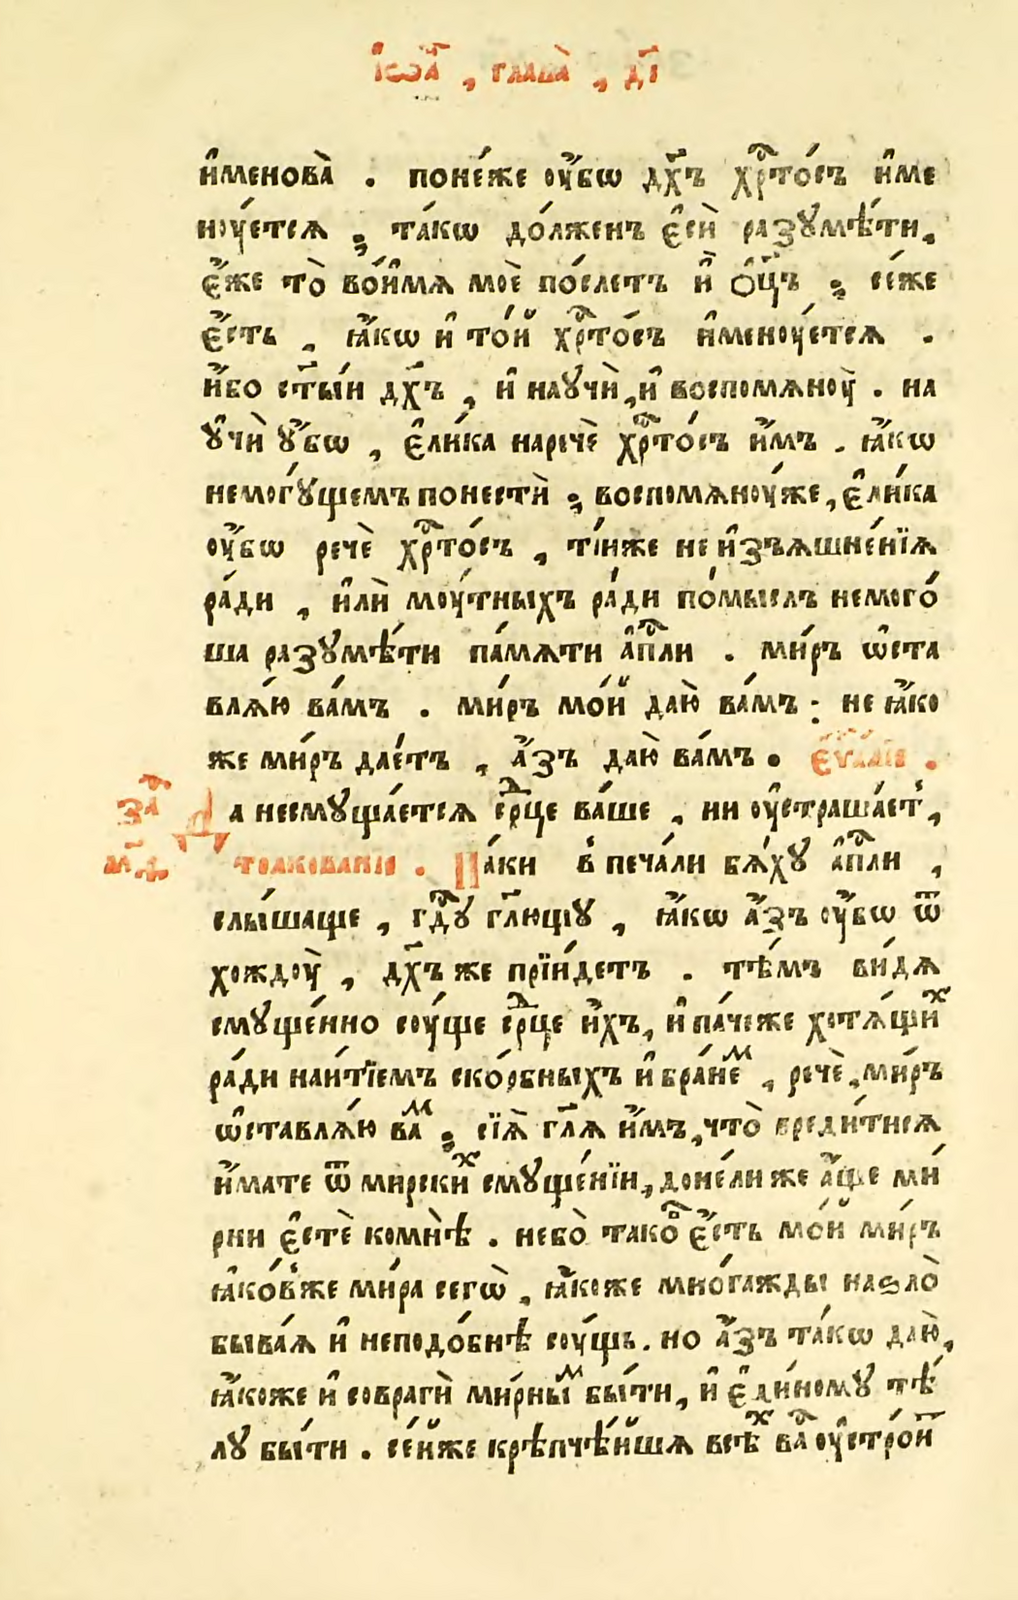 І҆ѡа҃ , глава̀ , д҃і
и҆менова̀ . поне́же ᲂу҆́бѡ дх҃ъ хрⷭ҇то́съ и҆ме
нꙋ́етсѧ ; та́кѡ до́лженъ є҆сѝ разꙋмѣ́ти,
є҆́же то̀ во́и҆мѧ моѐ по́слетъ и҆̀ ѻ҆ц҃ъ ; се́же
є҆́сть , ꙗ҆́кѡ и҆ то́й хрⷭ҇то́съ и҆менꙋ́етсѧ .
и҆́бо ст҃ы́и дх҃ъ , и҆ наꙋчѝ, и҆ воспомѧнꙋ̀ . на
ꙋ҆чѝ ꙋ҆́бѡ , є҆ли́ка наречѐ хрⷭ҇то́съ и҆̀мъ . ꙗ҆́кѡ
немогꙋ́щемъ понестѝ ; воспомѧнꙋ́же, є҆ли́ка
ᲂу҆́бѡ речѐ хрⷭ҇то́съ , ті́иже не и҆зъѧшне́нїѧ
ра́ди , и҆лѝ мꙋ́тныхъ ра́ди по́мыслъ немого́
ша разꙋмѣ́ти па́мѧти а҆пⷭ҇ли . ми́ръ ѡ҆ста
влѧ́ю ва́мъ . ми́ръ мо́й даю̀ ва́мъ : не ꙗ҆́ко
же ми́ръ дае́тъ , а҆́зъ даю̀ ва́мъ . є҆ѵⷢ҇лїе .
за҃ Да несмꙋща́етсѧ срⷣце ва́ше , ни ᲂу҆страша́ет̾,
м҃ѱ толкованїе . Па́ки в̾ печа́ли бѧ́хꙋ а҆пⷭ҇ли ,
слы́шаще , гдⷭ҇ꙋ гл҃ющꙋ , ꙗ҆́кѡ а҆́зъ ᲂу҆́бѡ ѿ
хождꙋ̀ , дх҃ъ же прїи́детъ . тѣ́мъ ви́дѧ
смꙋще́нно сꙋ́ще срⷣце и҆́хъ, и҆ па́чеже хотѧ́щиⷯ
ра́ди наи́тїемъ ско́рбныхъ и҆ бра́неⷨ , речѐ, ми́ръ
ѡ҆ставлѧ́ю ваⷨ ; сїѧ̀ гл҃ѧ и҆̀мъ, что̀ вреди́тисѧ
и҆́мате ѿ мирскиⷯ смꙋще́нїи, донели же а҆́ще ми́
рни є҆стѐ комнѣ̀ . небо̀ тако́в є҆́сть мо́й ми́ръ
ꙗ҆ко́в̾же ми́ра сегѡ̀ , ꙗ҆́коже мно́гажды наѕло̀
быва́ѧ и҆ неподо́бнѣ сꙋ́щь . но а҆́зъ та́кѡ даю̀,
ꙗ҆́коже и҆ совраги̇̀ ми́рныⷨ бы́ти, и҆ є҆ди́номꙋ тѣ́
лꙋ бы́ти . се́йже крѣпчѣ́йшѧ всѣⷯ ваⷭ ᲂу҆стро́и